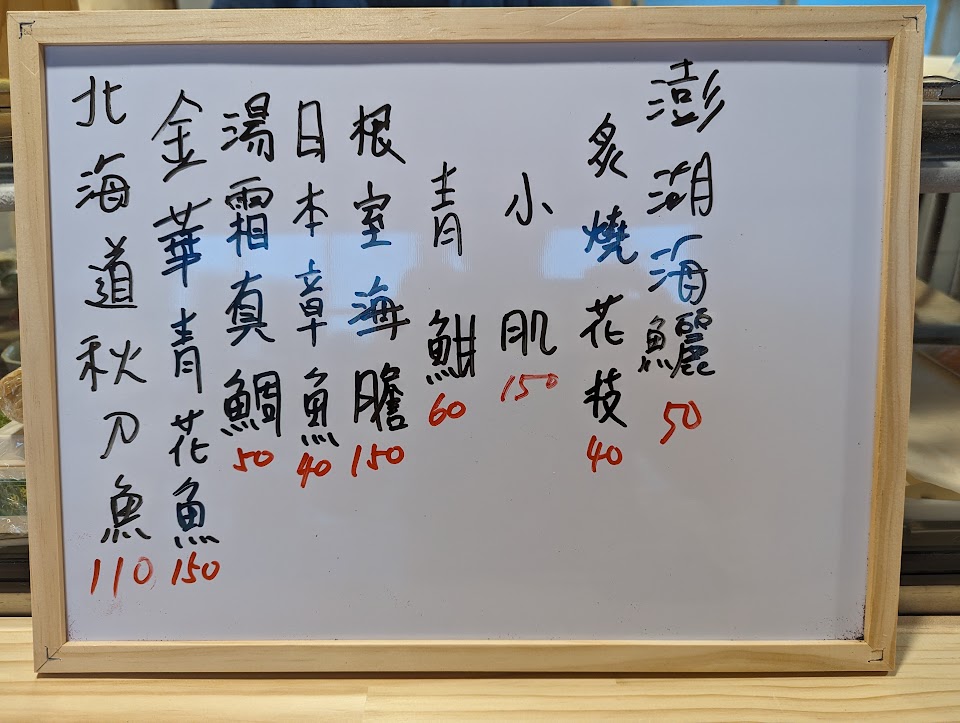 澎湖海鱺 50
炙燒花枝 40
小肌 150
青魽 60
根室海膽 150
日本章魚 40
湯霜真鯛 50
金華青花魚 150
北海道秋刀魚 110